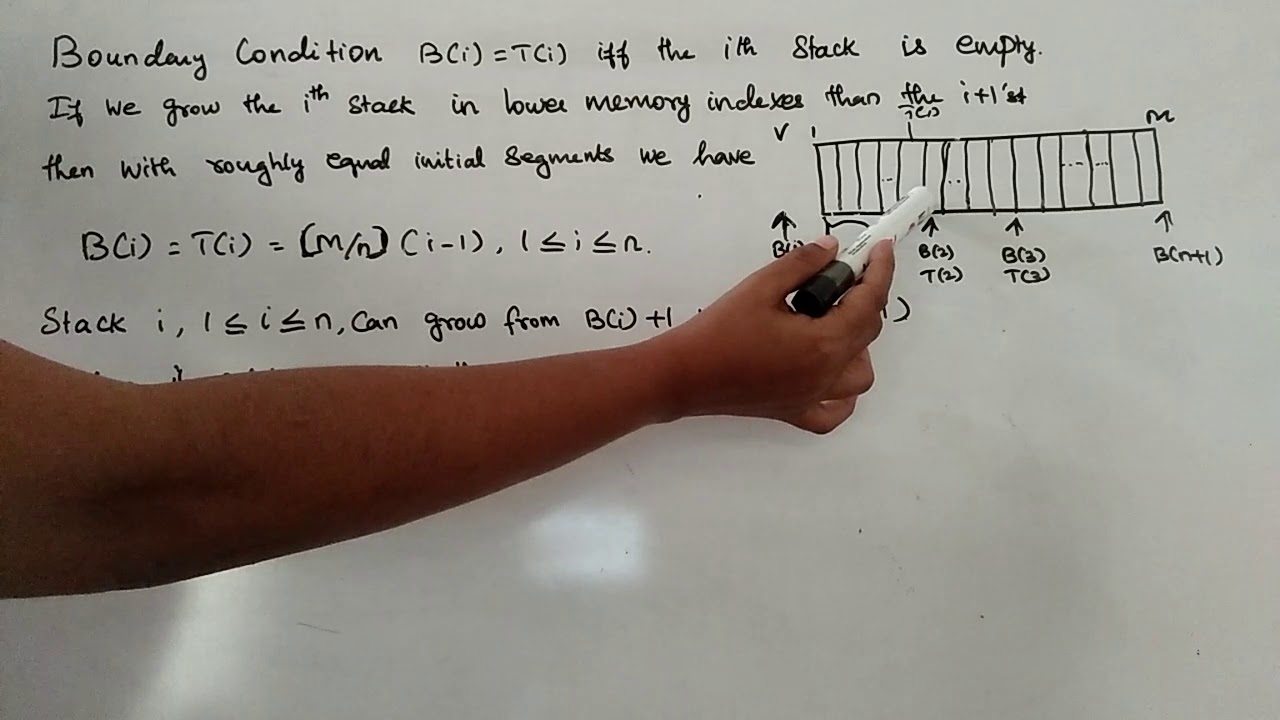 Boundary Condition B(i) = T(i) iff the ith Stack is empty.
If we grow the ith Stack in lower memory indexes than the i+1'st
then with roughly equal initial Segments we have
B(i) = T(i) = [M/n] (i-1), 1 ≤ i ≤ n.
Stack i, 1 ≤ i ≤ n, Can grow from B(i)+1
V 1 T(1) M
B(2) B(3) B(n+1)
T(2) T(3)